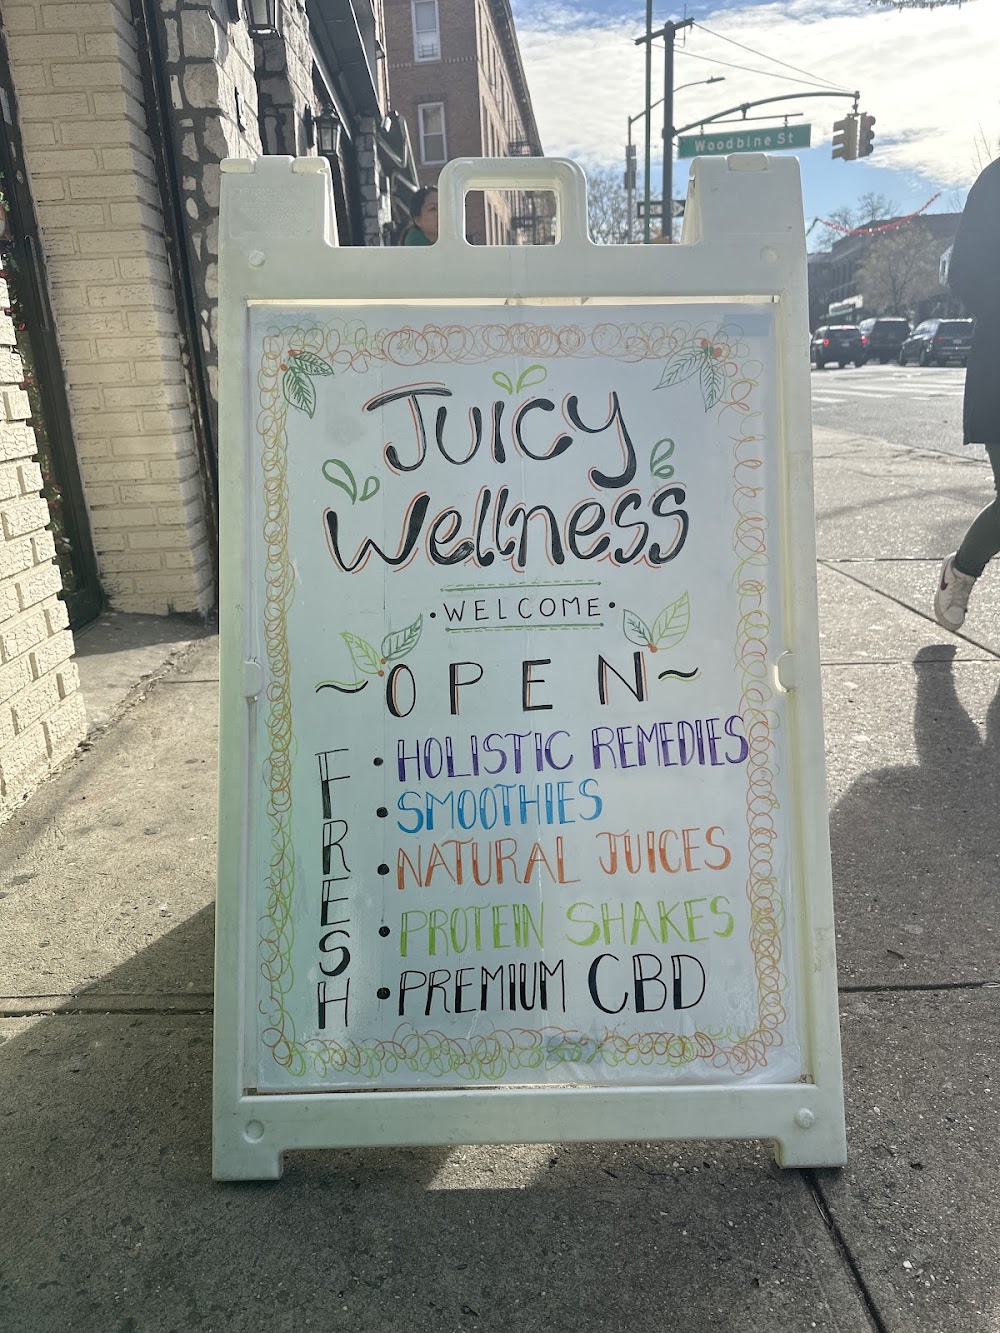 Woodbine St
Juicy
Wellness
•WELCOME•
~OPEN~
FRESH
• HOLISTIC REMEDIES
• SMOOTHIES
• NATURAL JUICES
• PROTEIN SHAKES
• PREMIUM CBD